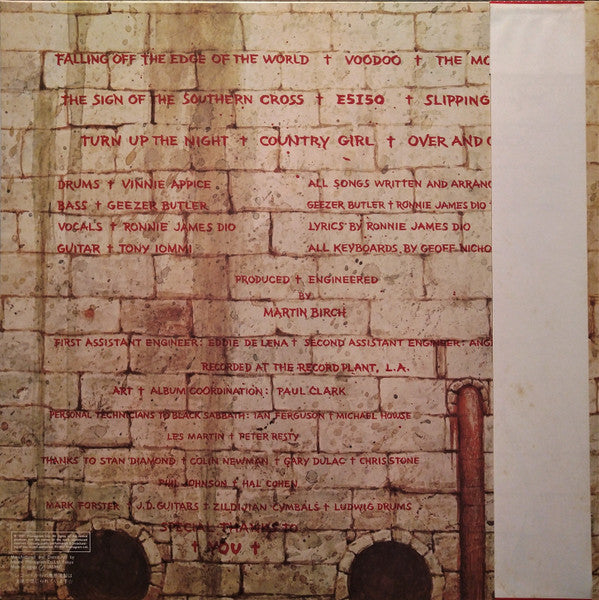 FALLING OFF THE EDGE OF THE WORLD † VOODOO † THE MO
THE SIGN OF THE SOUTHERN CROSS † E5150 † SLIPPING
TURN UP THE NIGHT † COUNTRY GIRL † OVER AND O
DRUMS † VINNIE APPICE
BASS † GEEZER BUTLER
VOCALS † RONNIE JAMES DIO
GUITAR † TONY IOMMI
ALL SONGS WRITTEN AND ARRANG
GEEZER BUTLER † RONNIE JAMES DIO
LYRICS BY RONNIE JAMES DIO
ALL KEYBOARDS BY GEOFF NICHO
PRODUCED † ENGINEERED
BY
MARTIN BIRCH
FIRST ASSISTANT ENGINEER: EDDIE DE LENA † SECOND ASSISTANT ENGINEER: ANG
RECORDED AT THE RECORD PLANT, L.A.
ART † ALBUM COORDINATION: PAUL CLARK
PERSONAL TECHNICIANS TO BLACK SABBATH: IAN FERGUSON † MICHAEL HOWSE
LES MARTIN † PETER RESTY
THANKS TO STAN DIAMOND † COLIN NEWMAN † GARY DULAC † CHRIS STONE
PHIL JOHNSON † HAL COHEN
MARK FORSTER † J.D. GUITARS † ZILDJIAN CYMBALS † LUDWIG DRUMS
SPECIAL THANKS TO
† YOU †